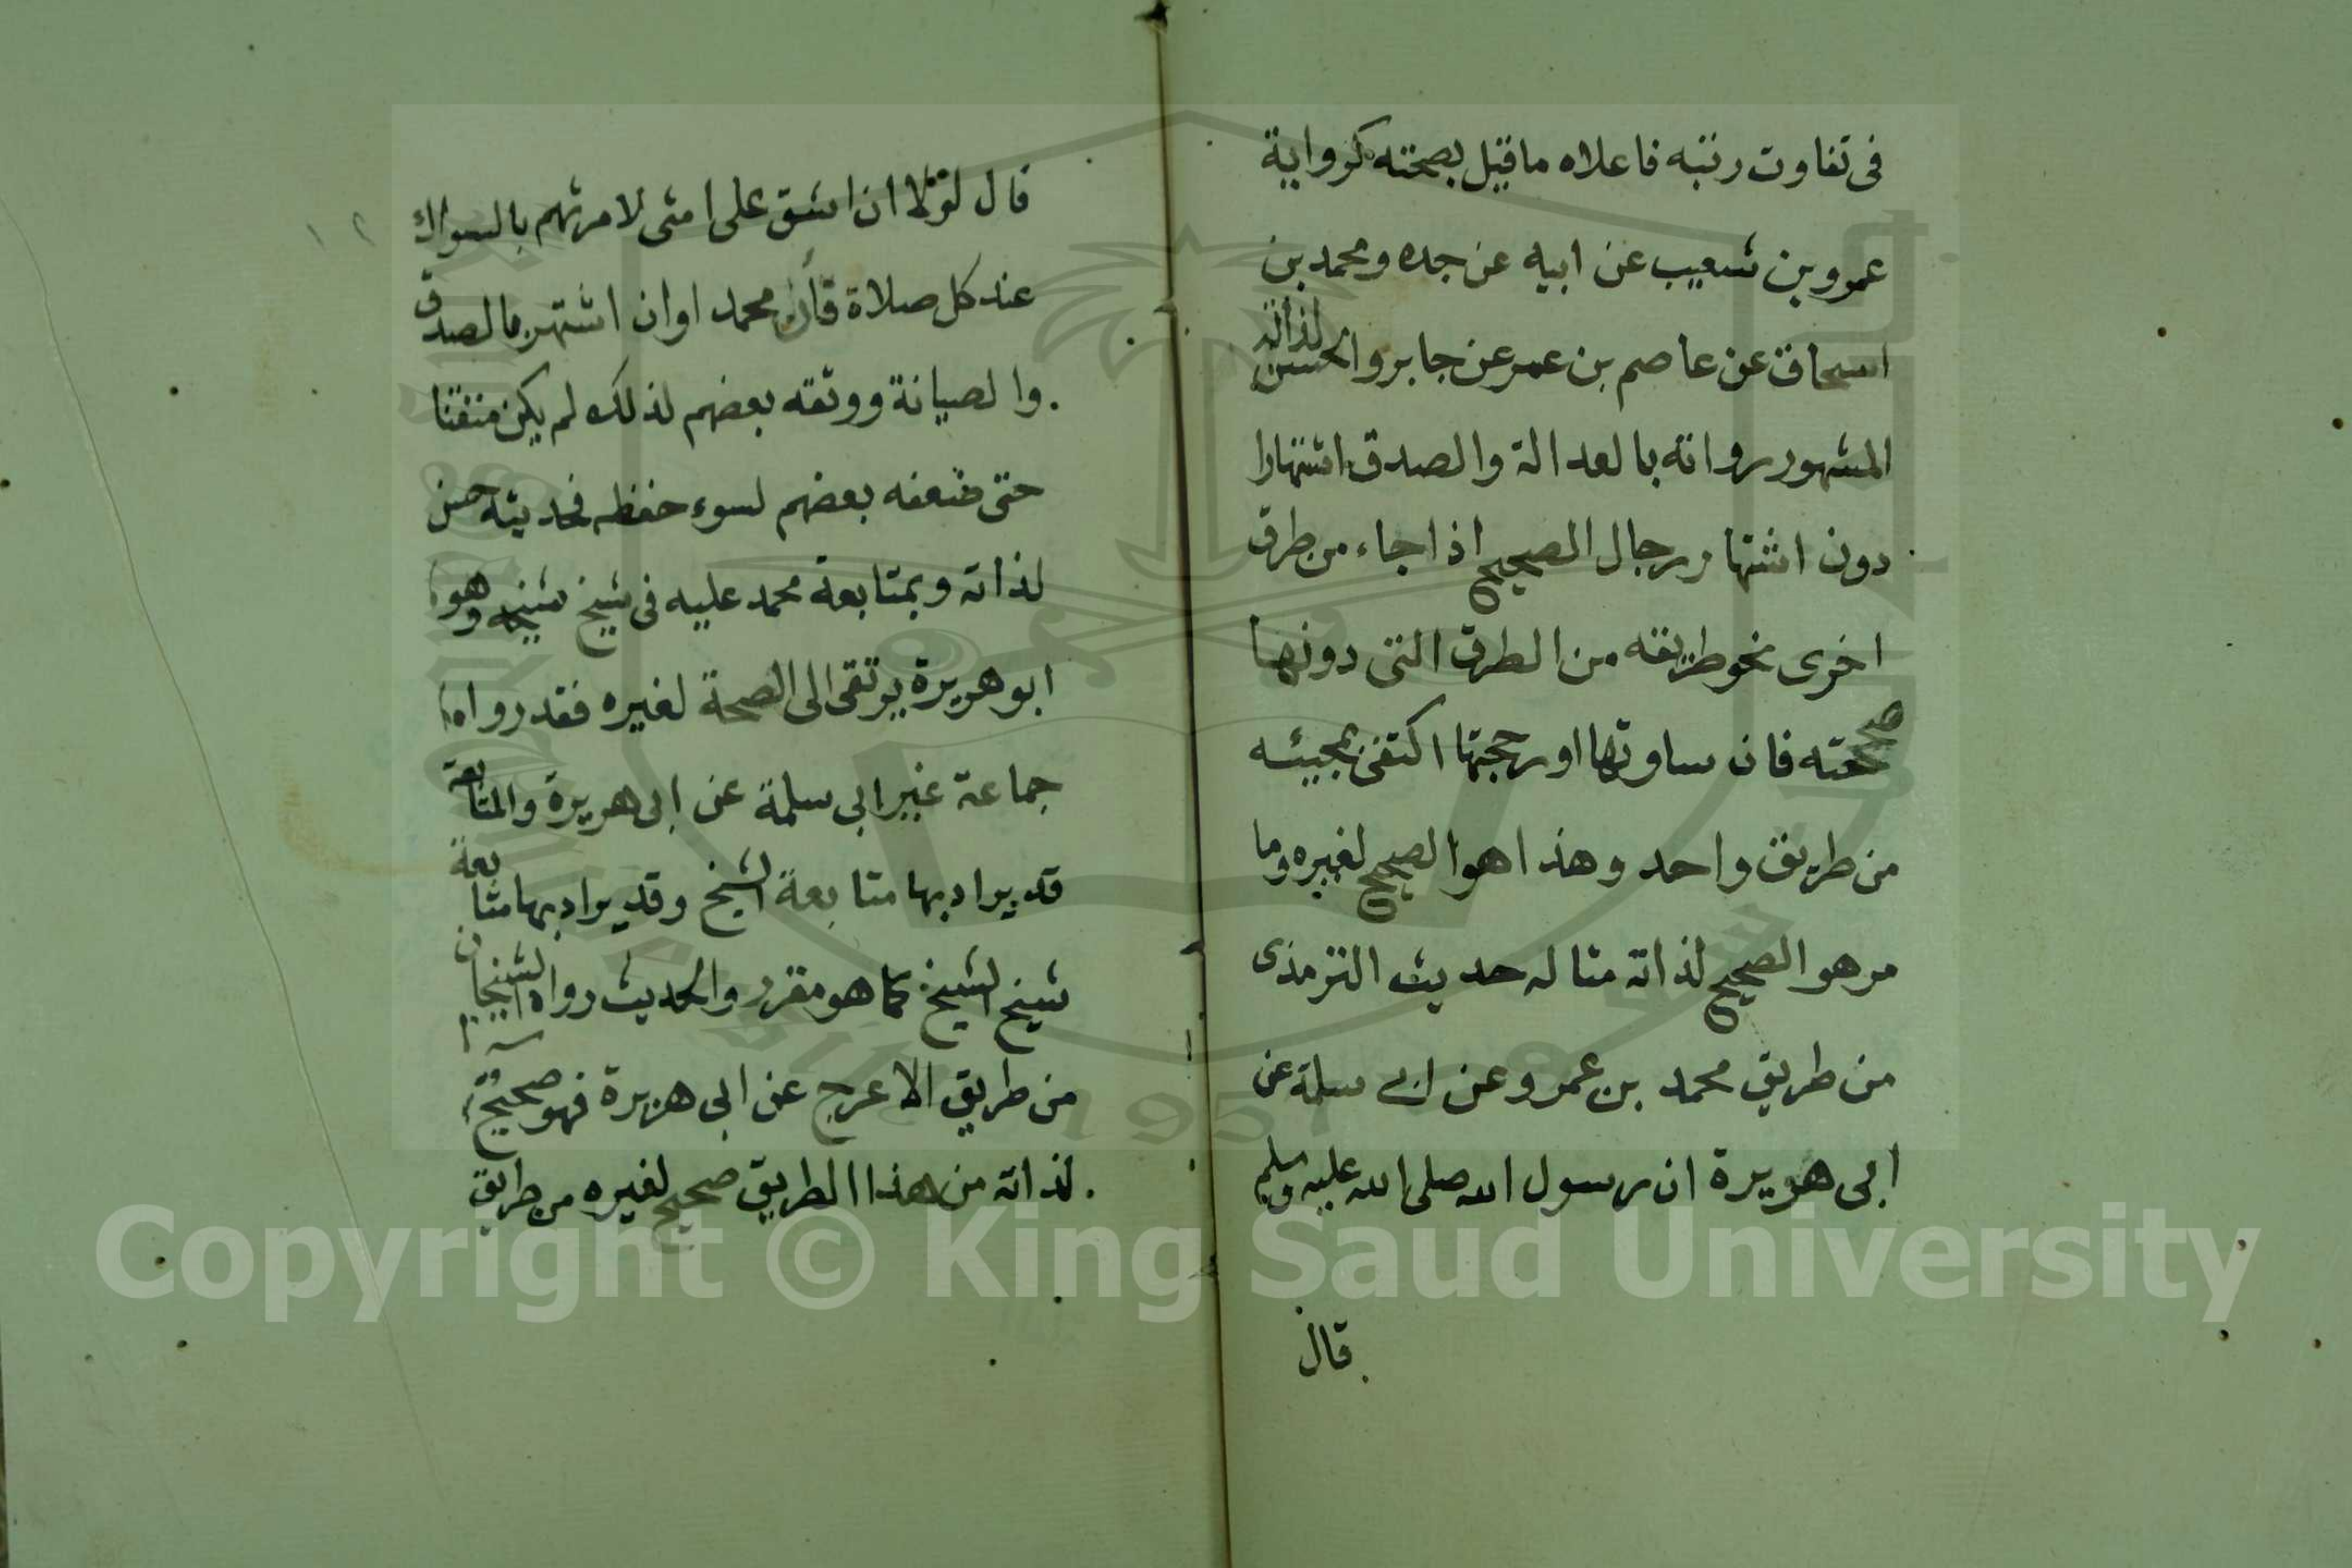 فى تفاوت رتبه فاعلاه ماقيل بصحته كرواية
عمرو بن شعيب عن ابيه عن جده ومحمد بن
اسحاق عن عاصم بن عمر عن جابر والحسن لذاته
المشهور رواته بالعدالة والصدق اشتهارا
دون اشتهار رجال الصحيح اذا جاء من طرق
اخرى نحو طريقه من الطرق التى دونها
صحته فان ساوتها او رجحتها اكتفى بمجيئه
من طريق واحد وهذا هو الصحيح لغيره وما
مر هو الصحيح لذاته مثاله حديث الترمذى
من طريق محمد بن عمرو عن ابى سلمة عن
ابى هريرة ان رسول الله صلى الله عليه وسلم
قال
١٢
قال لولا ان اشق على امتى لامرتهم بالسواك
عند كل صلاة فان محمد اوان اشتهر بالصدق
والصيانة ووثقه بعضهم لذلك لم يكن متقنا
حتى ضعفه بعضهم لسوء حفظه فحديثه حسن
لذاته وبمتابعة محمد عليه فى شيخ شيخه وهو
ابو هريرة يرتقى الى الصحة لغيره فقد رواه
جماعة غير ابى سلمة عن ابى هريرة والمتابعة
قد يراد بها متابعة الشيخ وقد يراد بها متابعة
شيخ الشيخ كما هو مقرر والحديث رواه الشيخان
من طريق الاعرج عن ابى هريرة فهو صحيح
لذاته من هذا الطريق صحيح لغيره من طريق
Copyright © King Saud University
1957